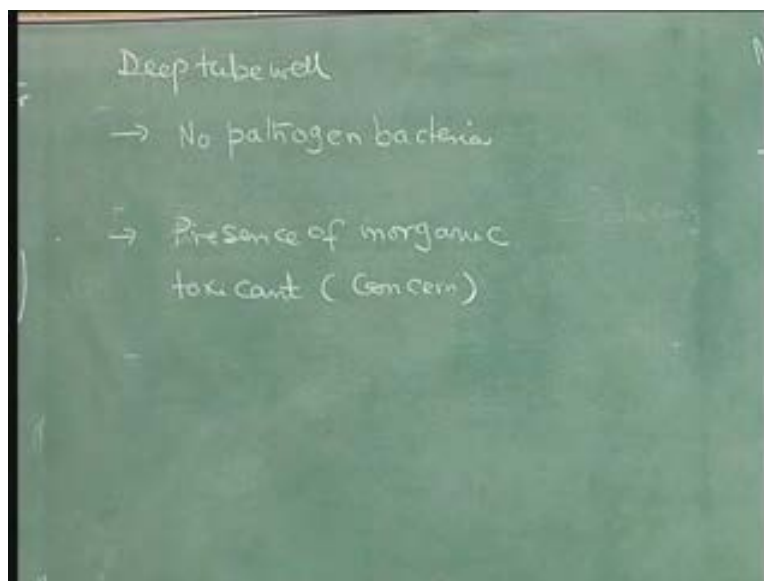 Deep tube well
→ No pathogen bacteria
→ Presence of inorganic
toxicant (Concern)